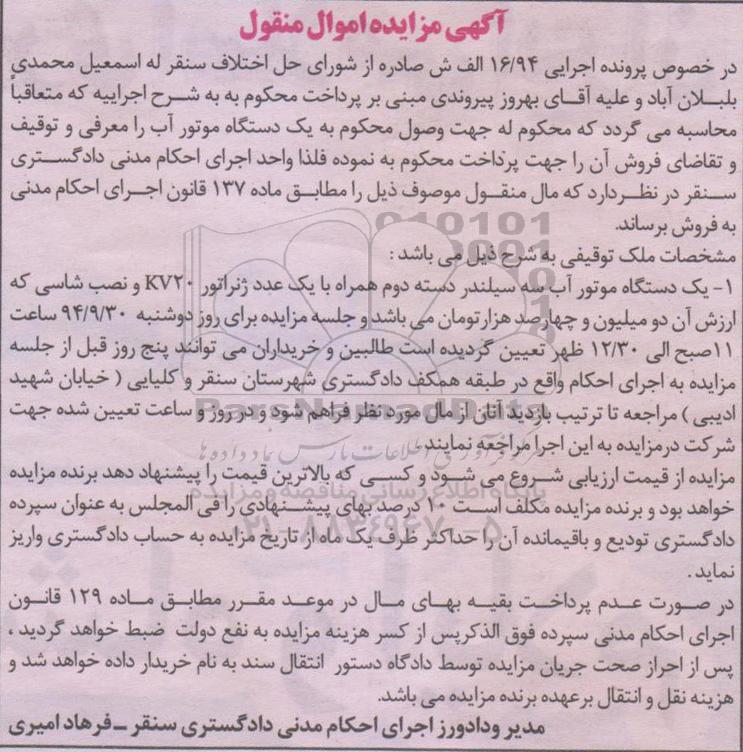 آگهی مزایده اموال منقول
در خصوص پرونده اجرایی ۱۶/۹۴ الف ش صادره از شورای حل اختلاف سنقر له اسمعیل محمدی
بلبلان آباد و علیه آقای بهروز پیروندی مبنی بر پرداخت محکوم به به شرح اجراییه که متعاقباً
محاسبه می گردد که محکوم له جهت وصول محکوم به یک دستگاه موتور آب را معرفی و توقیف
و تقاضای فروش آن را جهت پرداخت محکوم به نموده فلذا واحد اجرای احکام مدنی دادگستری
سنقر در نظر دارد که مال منقول موصوف ذیل را مطابق ماده ۱۳۷ قانون اجرای احکام مدنی
به فروش برساند.
مشخصات ملک توقیفی به شرح ذیل می باشد :
۱- یک دستگاه موتور آب سه سیلندر دسته دوم همراه با یک عدد ژنراتور KV۲۰ و نصب شاسی که
ارزش آن دو میلیون و چهارصد هزار تومان می باشد و جلسه مزایده برای روز دوشنبه ۹۴/۹/۳۰ ساعت
۱۱صبح الی ۱۲/۳۰ ظهر تعیین گردیده است طالبین و خریداران می توانند پنج روز قبل از جلسه
مزایده به اجرای احکام واقع در طبقه همکف دادگستری شهرستان سنقر و کلیایی ( خیابان شهید
ادیبی ) مراجعه تا ترتیب بازدید آنان از مال مورد نظر فراهم شود و در روز و ساعت تعیین شده جهت
شرکت درمزایده به این اجرا مراجعه نمایند .
مزایده از قیمت ارزیابی شروع می شود و کسی که بالاترین قیمت را پیشنهاد دهد برنده مزایده
خواهد بود و برنده مزایده مکلف است ۱۰ درصد بهای پیشنهادی را فی المجلس به عنوان سپرده
دادگستری تودیع و باقیمانده آن را حداکثر ظرف یک ماه از تاریخ مزایده به حساب دادگستری واریز
نماید .
در صورت عدم پرداخت بقیه بهای مال در موعد مقرر مطابق ماده ۱۲۹ قانون
اجرای احکام مدنی سپرده فوق الذکرپس از کسر هزینه مزایده به نفع دولت ضبط خواهد گردید ،
پس از احراز صحت جریان مزایده توسط دادگاه دستور انتقال سند به نام خریدار داده خواهد شد و
هزینه نقل و انتقال برعهده برنده مزایده می باشد.
مدیر ودادورز اجرای احکام مدنی دادگستری سنقر ـ فرهاد امیری
ParsNamadData
مرکز فرآوری اطلاعات پارس نماد داده ها
پایگاه اطلاع رسانی مناقصه و مزایده
۰۲۱-۸۸۳۴۹۶۷۰-۵